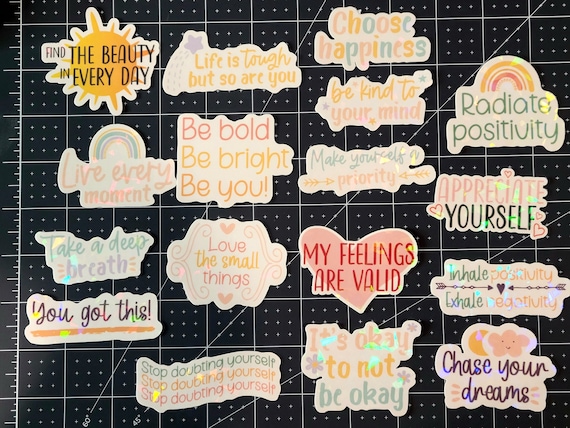 FIND THE BEAUTY
IN EVERY DAY
Life is tough
but so are you
Choose
happiness
be kind to
your mind
Radiate
positivity
Live every
moment
Be bold
Be bright
Be you!
Make yourself a
priority
APPRECIATE
YOURSELF
Take a deep
breath
Love
the small
things
MY FEELINGS
ARE VALID
Inhale positivity
Exhale negativity
You got this!
Stop doubting yourself
Stop doubting yourself
Stop doubting yourself
It's okay
to not
be okay
Chase your
dreams
60°
45°